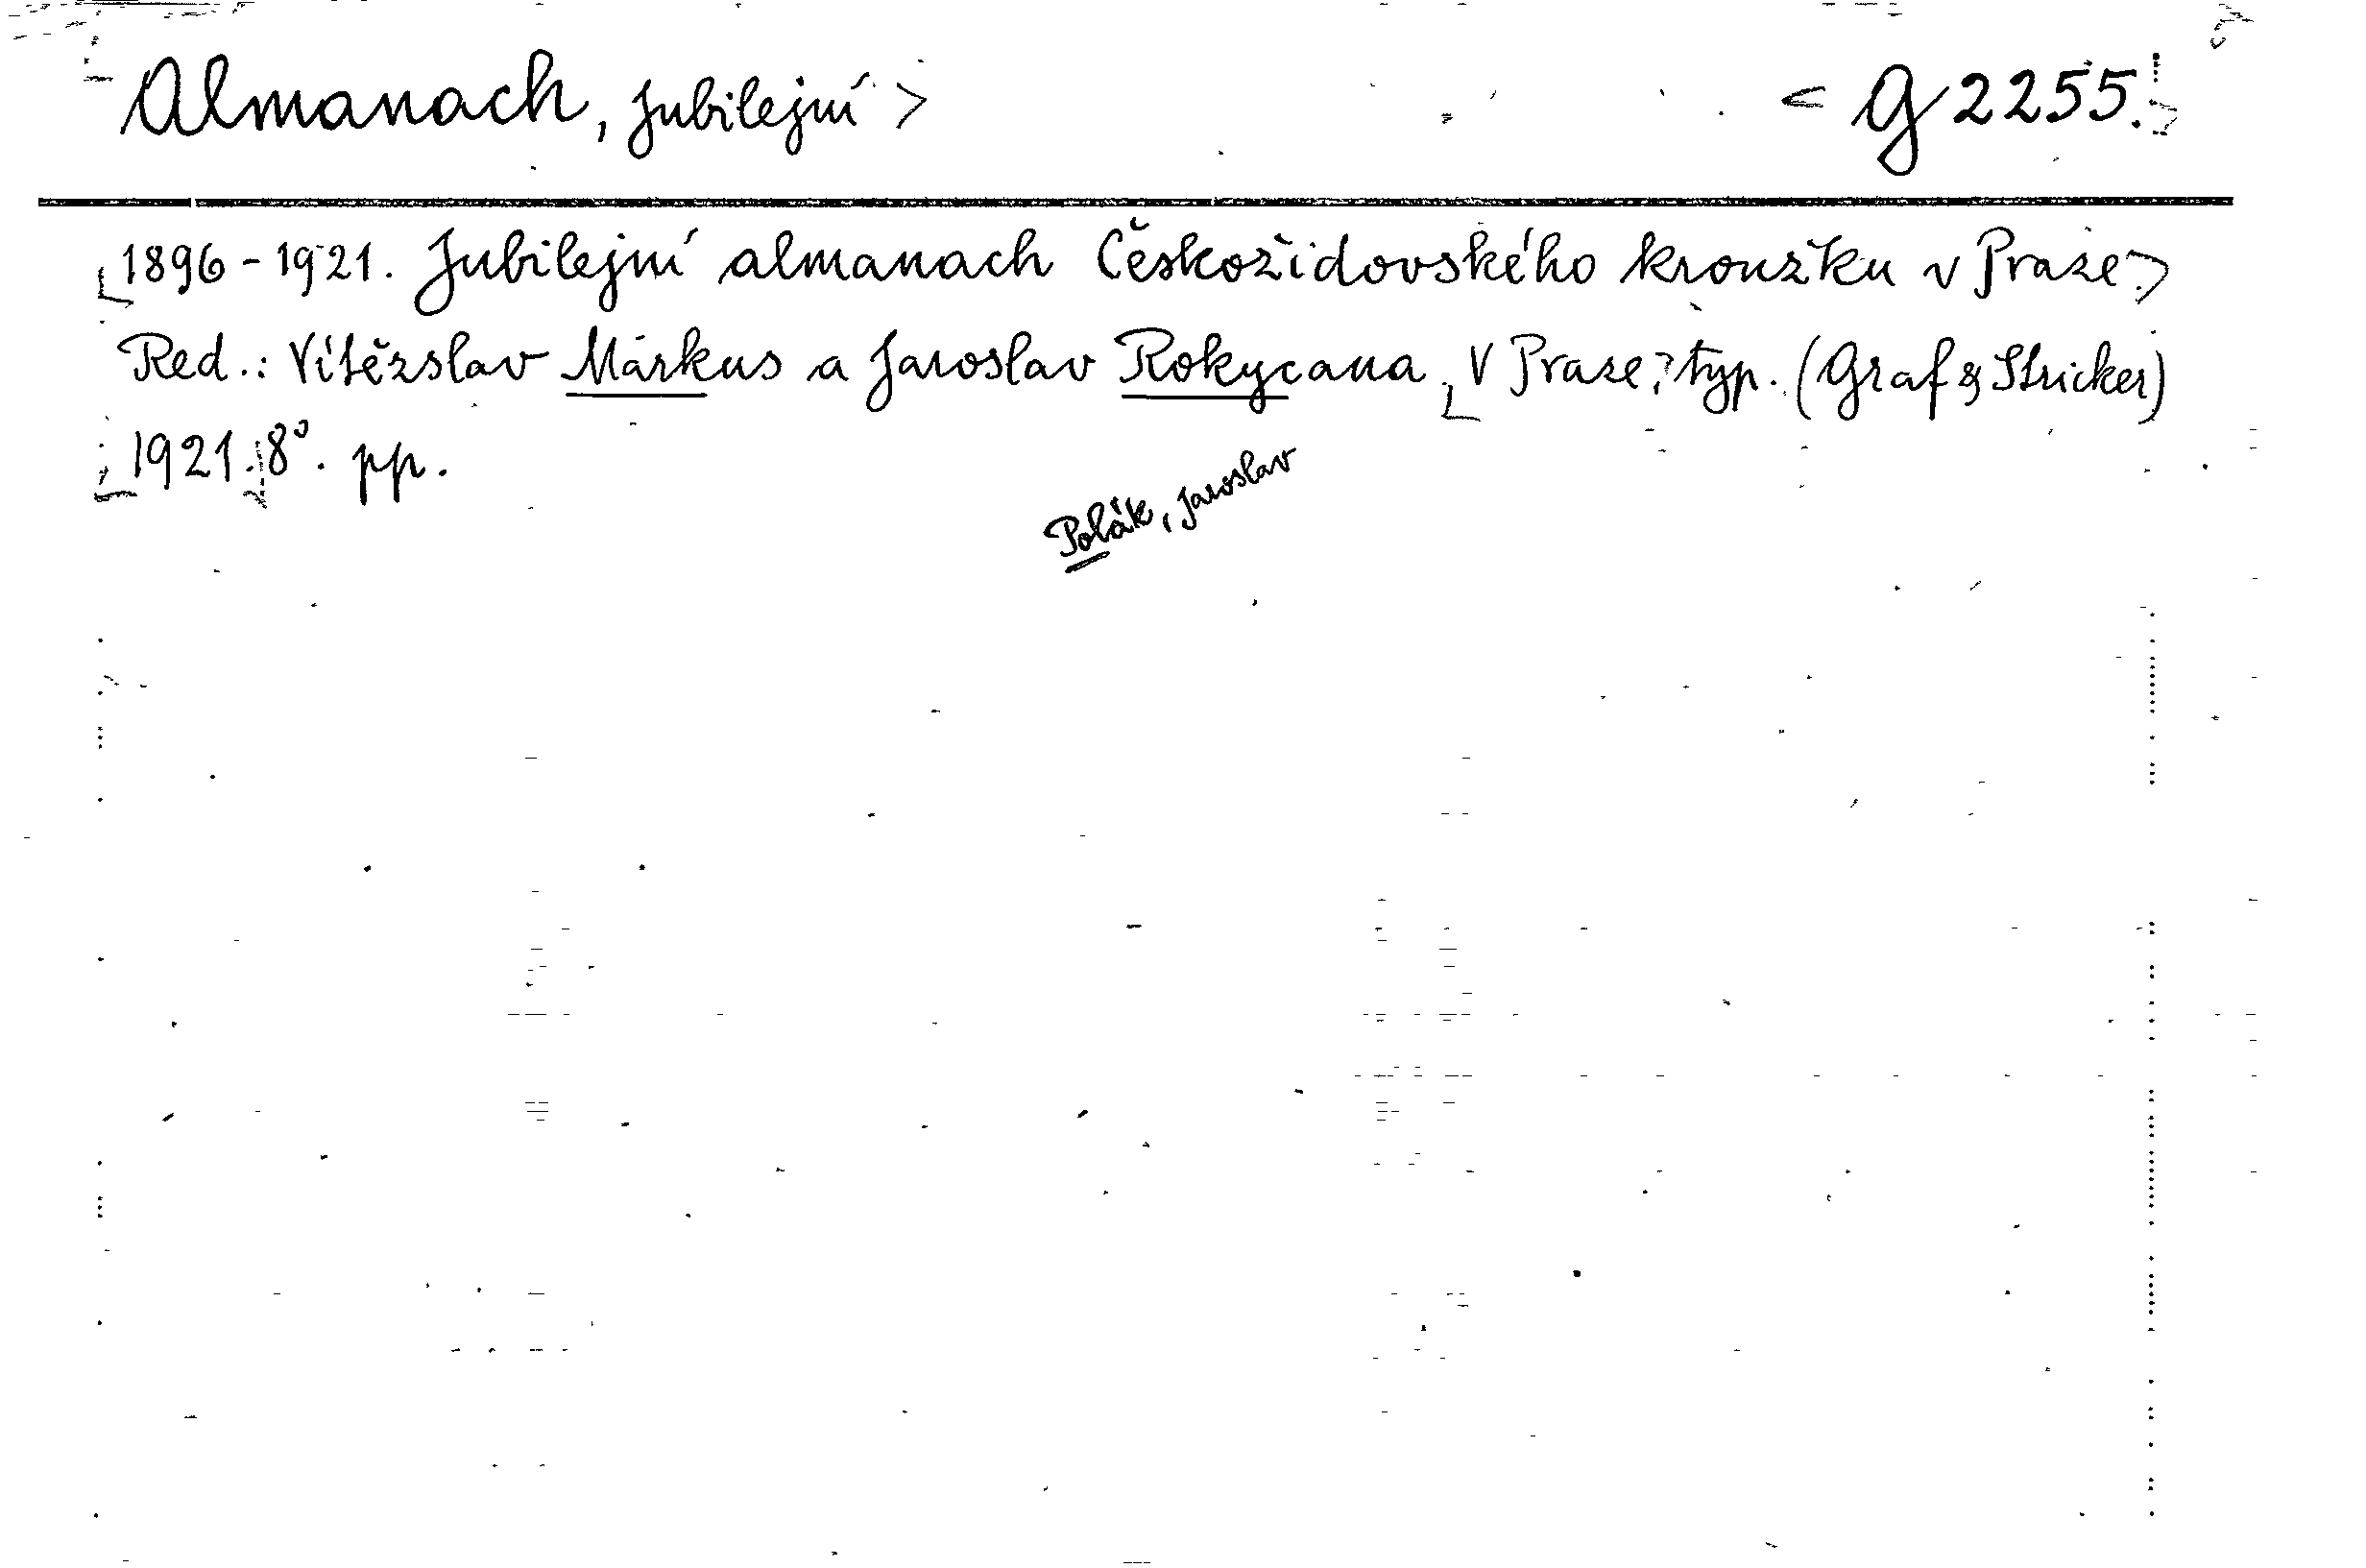 Almanach, Jubilejní > < G 2255.
1896-1921. Jubilejní almanach Českožidovského kroužku v Praze.>
Red.: Vítězslav Márkus a Jaroslav Rokycana, V Praze, typ. (Graf & Stricker)
1921. 8°. pp.
Polák, Jaroslav